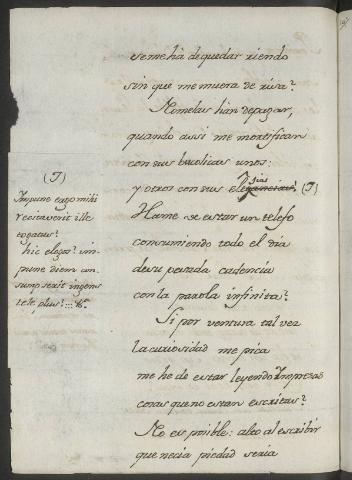 se me hà de quedar riendo
sin que me muera de risa?
No me las han de pagar,
quando assi me mortifican
con sus bucolicas unos:
y otros con sus elegias? (T)
Hame de estar un Telefo
consumiendo todo el dia
de su pesada cadencia
con la parola infinita?
Si por ventura tal vez
la curiosidad me pica
me he de estar leyendo Impresas
cosas que no estan escritas?
No es posible: alto al escribir
que necia piedad seria
(T)
Impune ergo mihi
recitaverit ille
togatas?
hic elegos? im-
pune diem con-
sumpserit ingens
tele phus? ... &c.